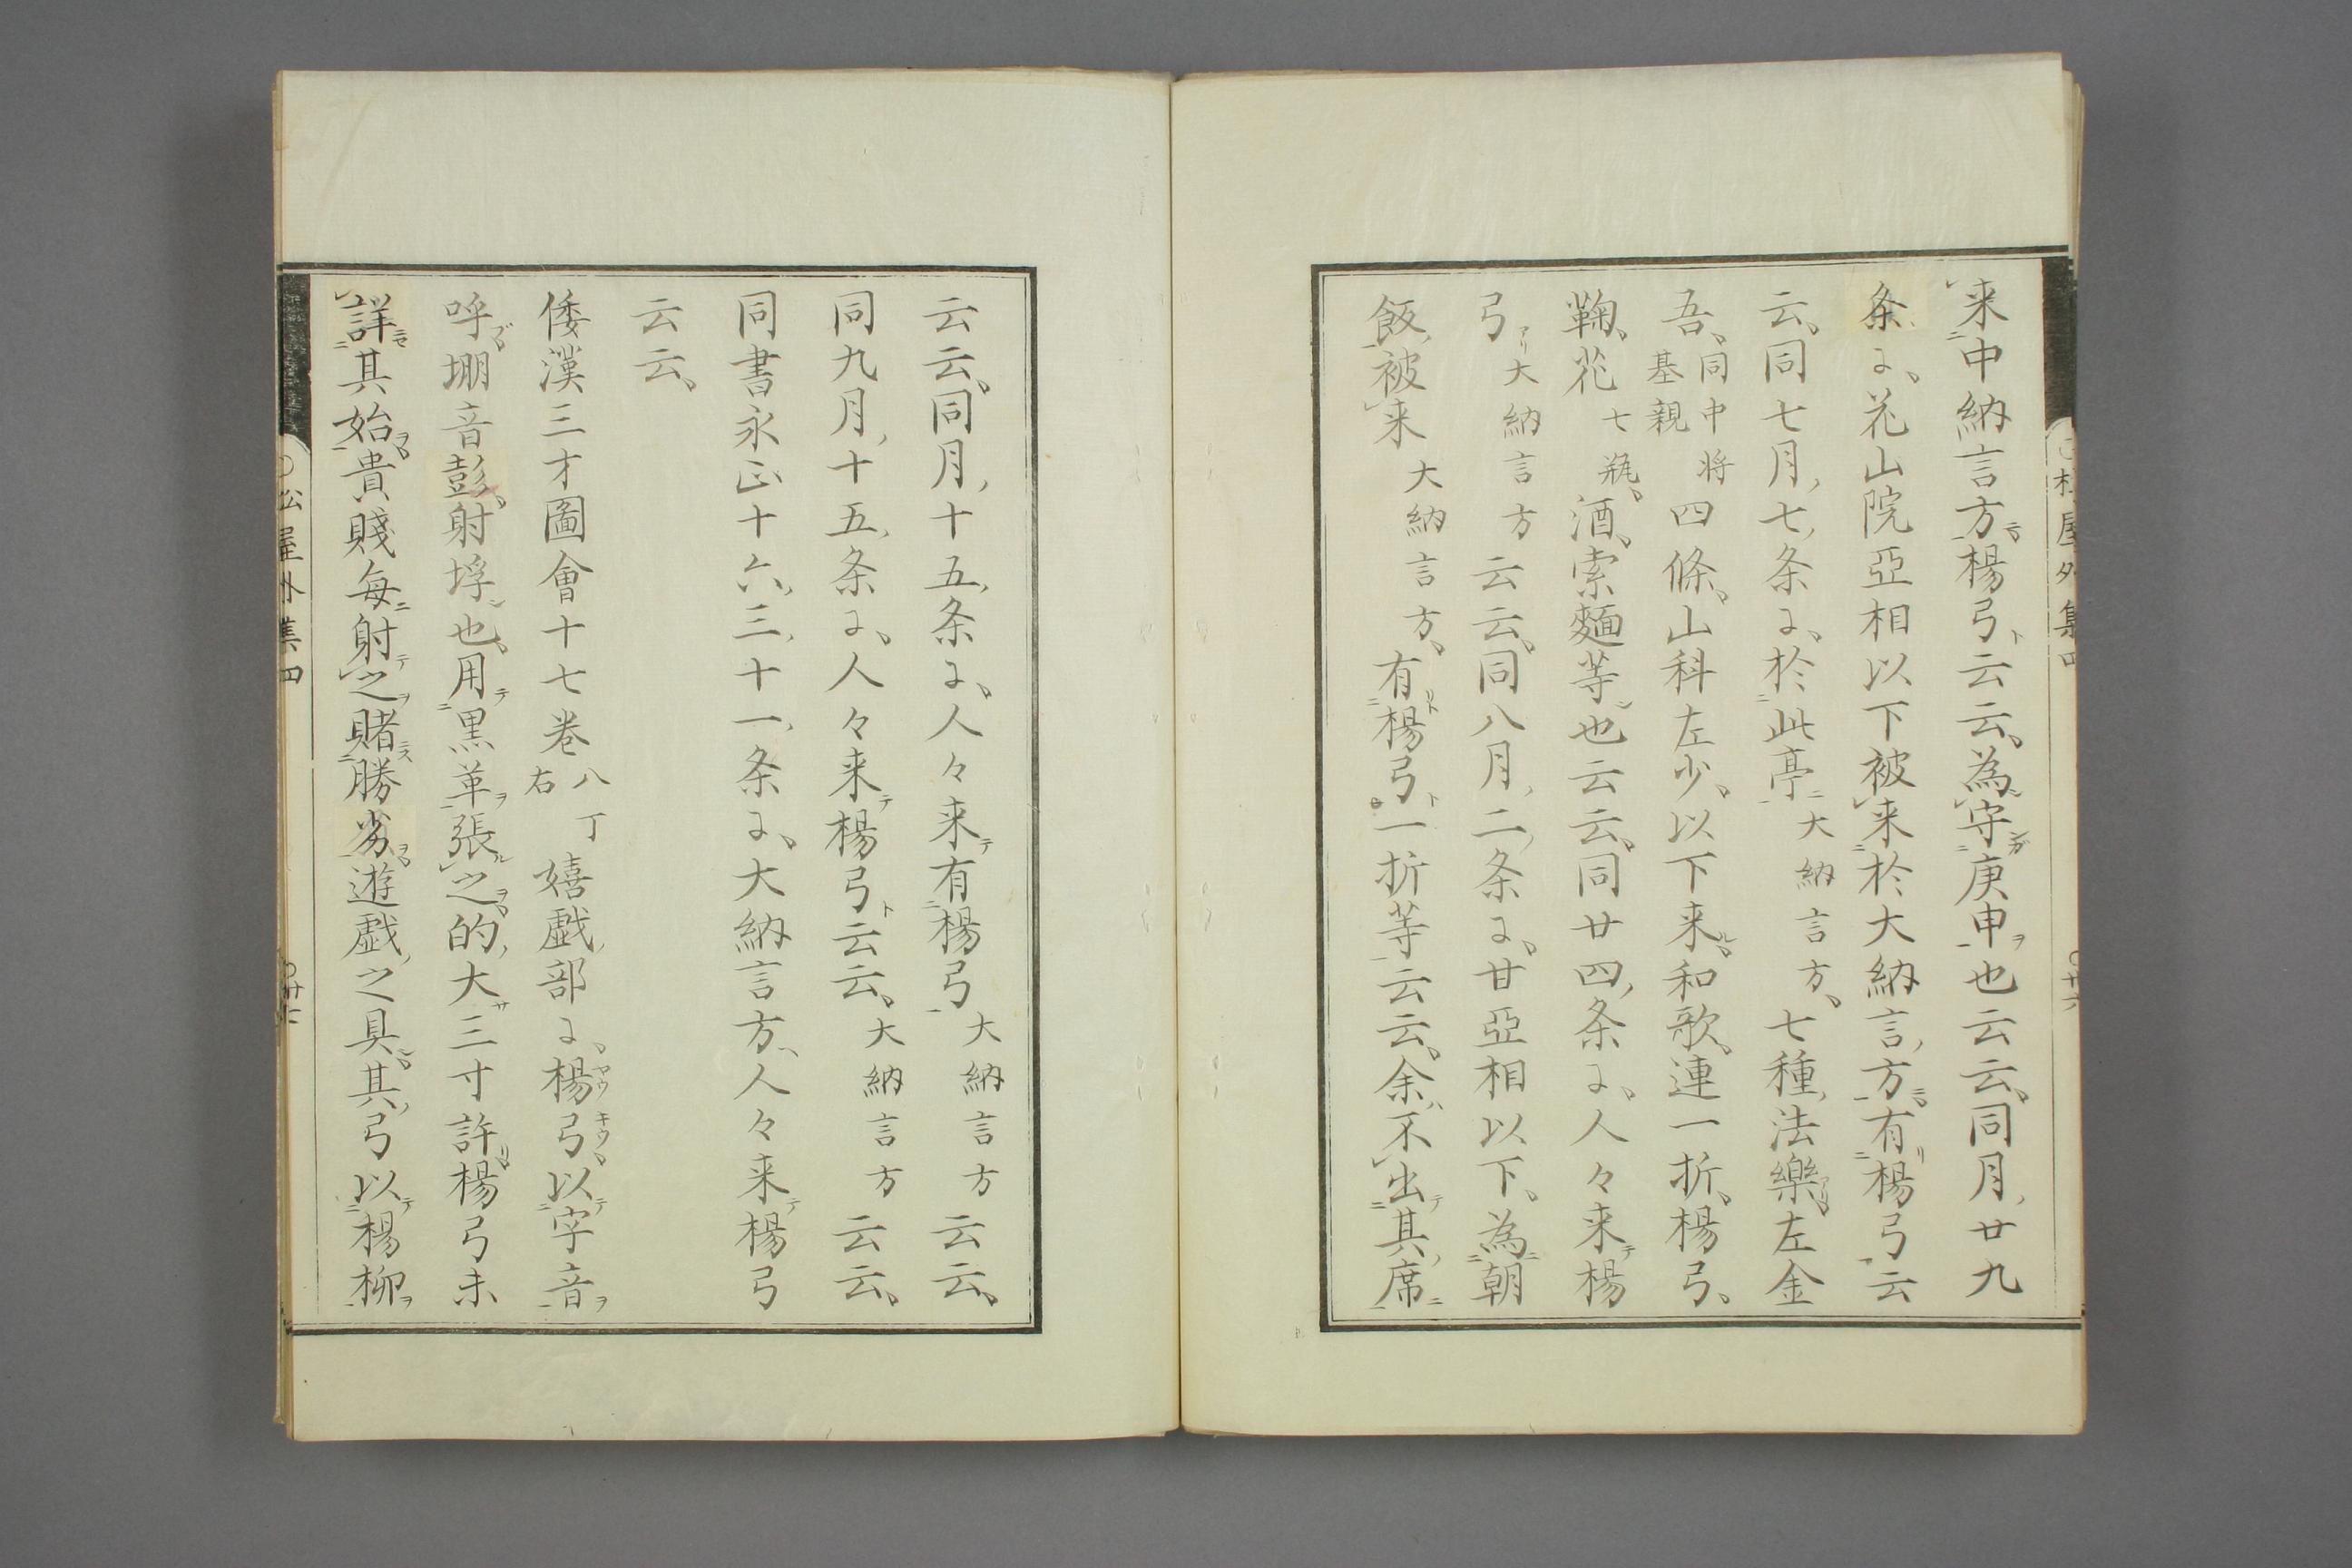 来中納言方楊弓云云、為守庚申也云云、同月廿九
条に、花山院亞相以下被来於大納言方有楊弓云
云、同七月七条に、於此亭大納言方、七種法樂左金
吾、同中将基親四條、山科左少、以下来、和歌連一折、楊弓、
鞠、花七瓶、酒、索麵等也云云、同廿四条に、人々来楊
弓大納言方云云、同八月二条に、甘亞相以下、為朝
飯被来大納言方、有楊弓一折等云云、余不出其席
云云、同月十五条に、人々来有楊弓大納言方云云、
同九月十五条に、人々来楊弓云云、大納言方云云、
同書永正十六三十一条に、大納言方、人々来楊弓
云云、
倭漢三才圖會十七巻八丁右嬉戯部に、楊弓以字音
呼堋音彭、射垜也、用黒革張之的大三寸許楊弓未
詳其始貴賤毎射之賭勝劣遊戯之具其弓以楊柳
松屋外集四